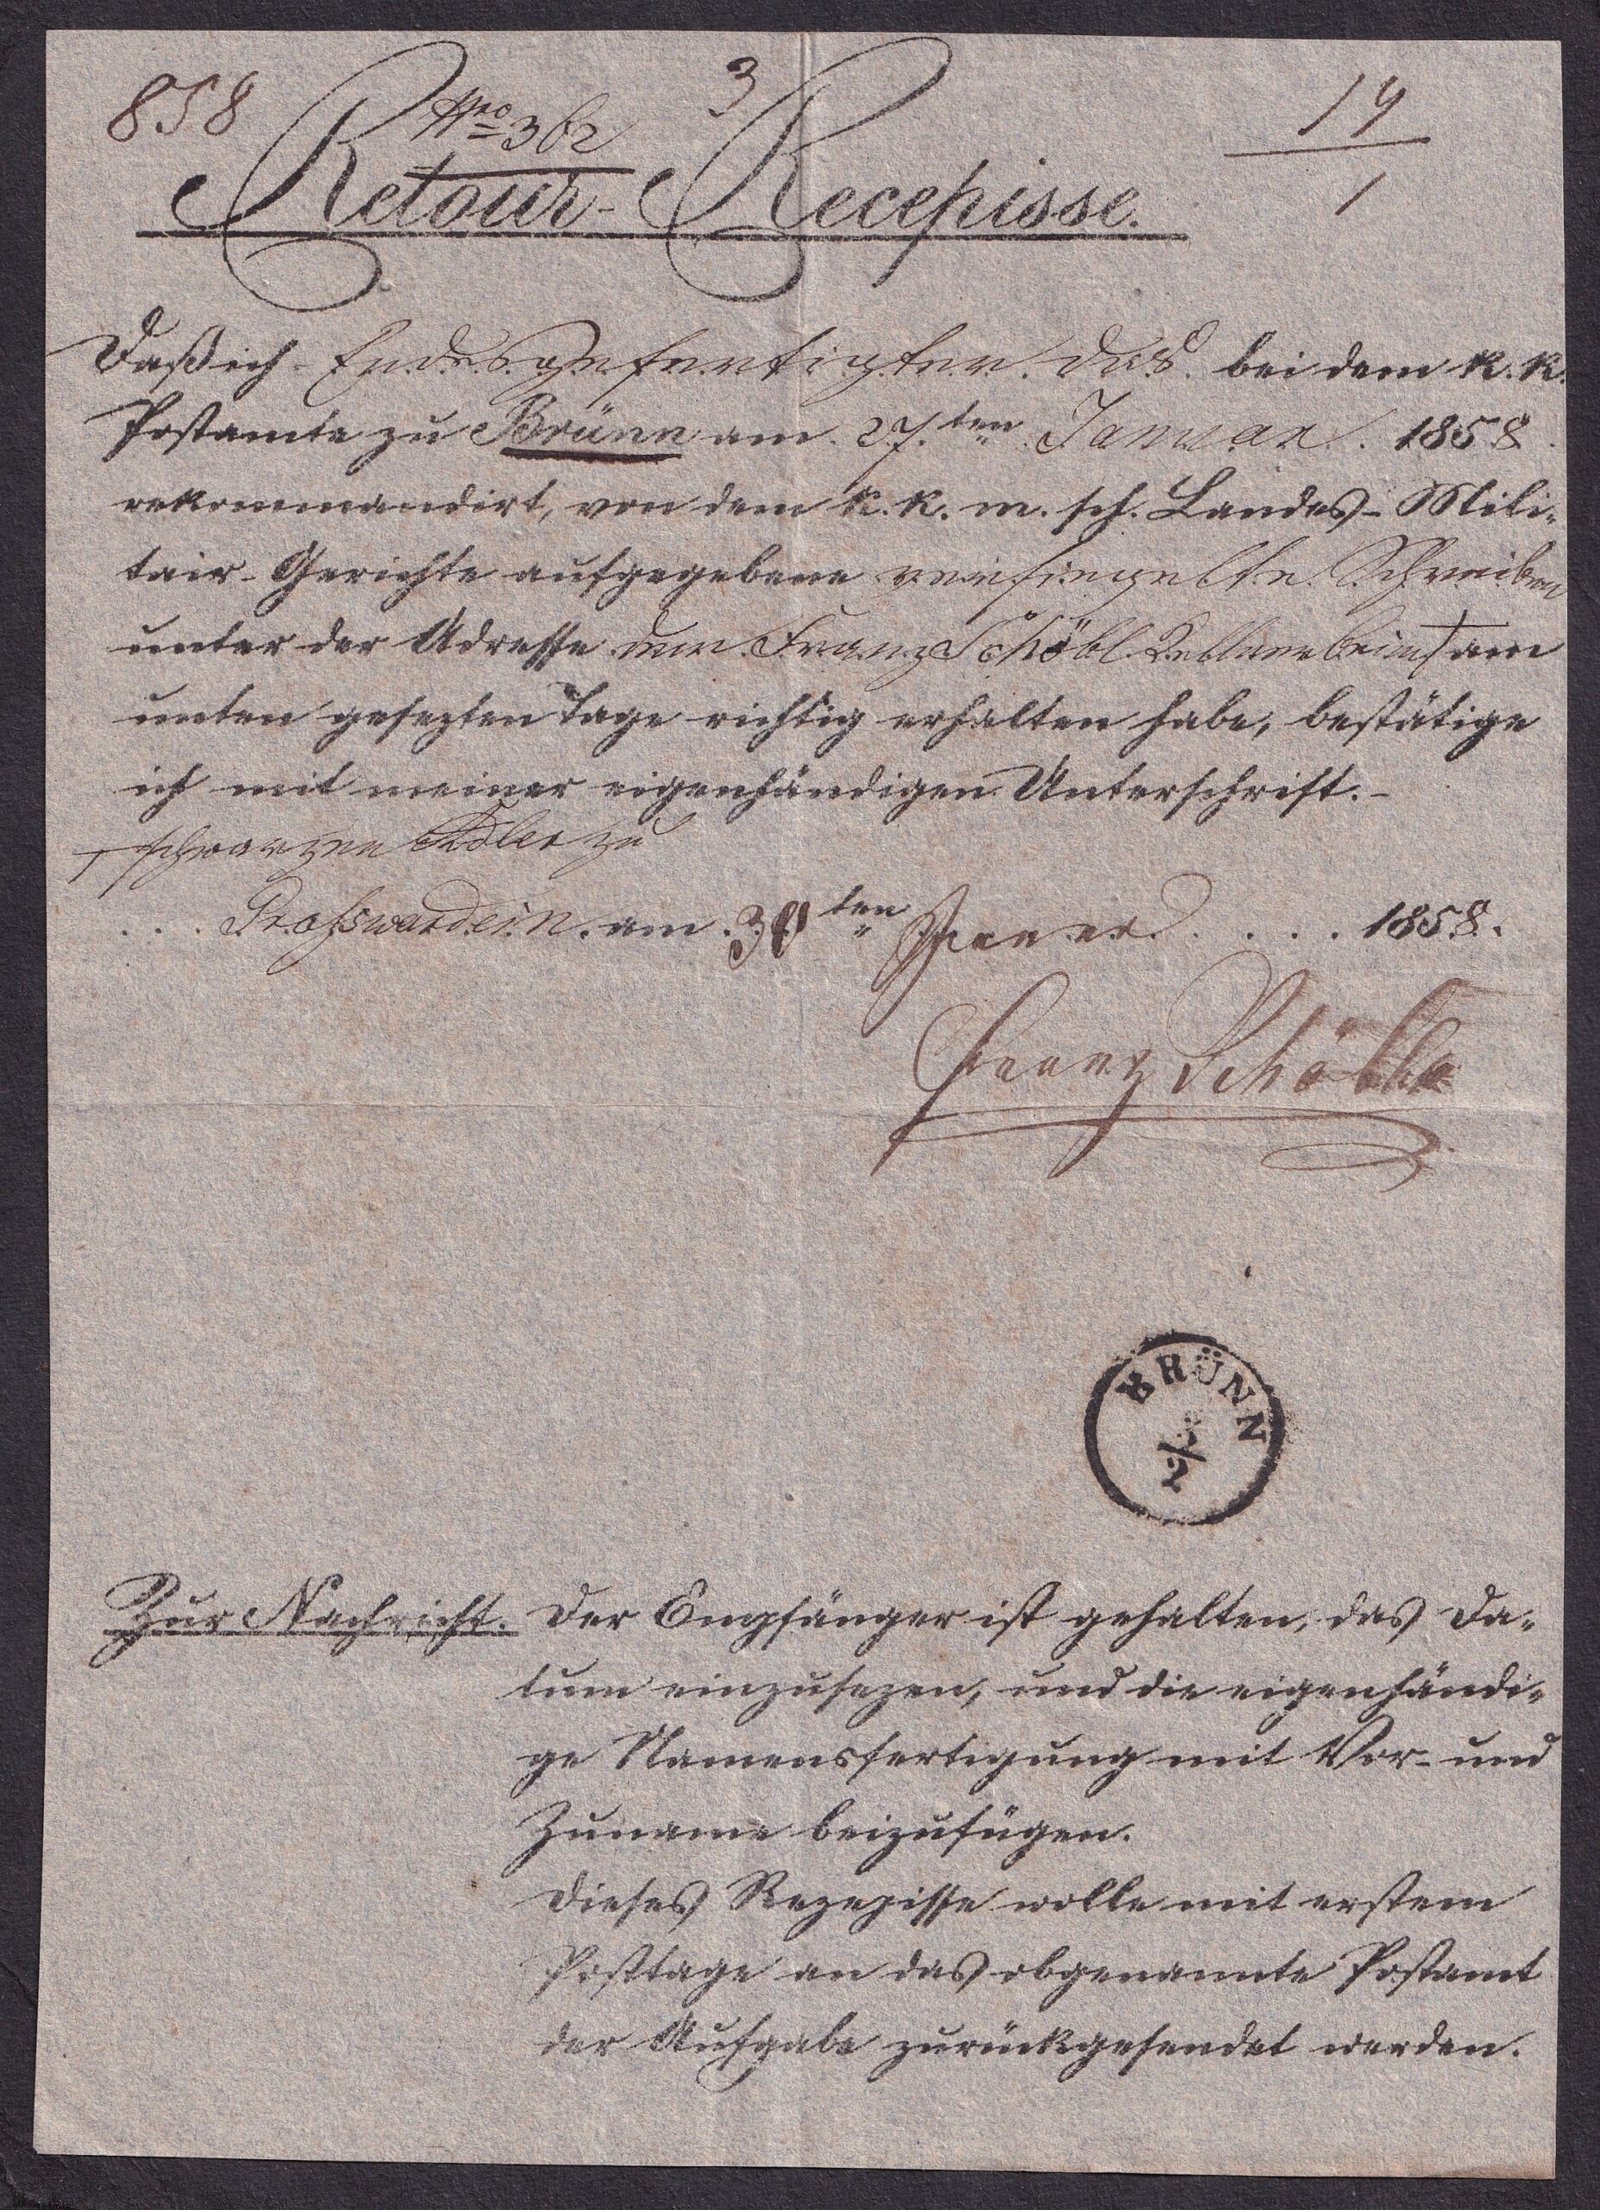 858
Nro 362
3
14
1
Retour-Recepisse.
Daß ich Endesgefertigter das bei dem K. K.
Postamte zu Brünn am 27.ten Januar 1858
rekommandirt, von dem k. k. m. sch. Landes-Mili-
tair-Gerichte aufgegebene versiegelte Schreiben
unter der Adresse Franz Schöbl Kellner beim † am
unten gesezten Tage richtig erhalten habe, bestätige
ich mit meiner eigenhändigen Unterschrift.-
† schwarzen Adler zu
am 30ten Jäner 1858.
Franz Schöbl
BRÜNN
2
Zur Nachricht. Der Empfänger ist gehalten, das Da-
tum einzusezen, und die eigenhändi-
ge Namensfertigung mit Vor- und
Zuname beizufügen.
Dieses Rezepisse wolle mit erstem
Posttage an das obgenannte Postamt
der Aufgabe zurückgesendet werden.